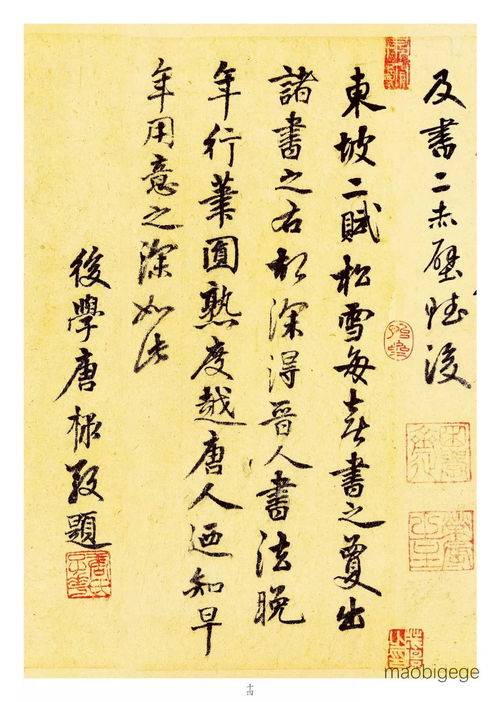 及書二赤壁賦後
東坡二賦松雪每喜書之敻出
諸書之右深得晉人書法晚
年行筆圓熟度越唐人迺知早
年用意之深如此
後學唐棣敬題
maobigege
十四